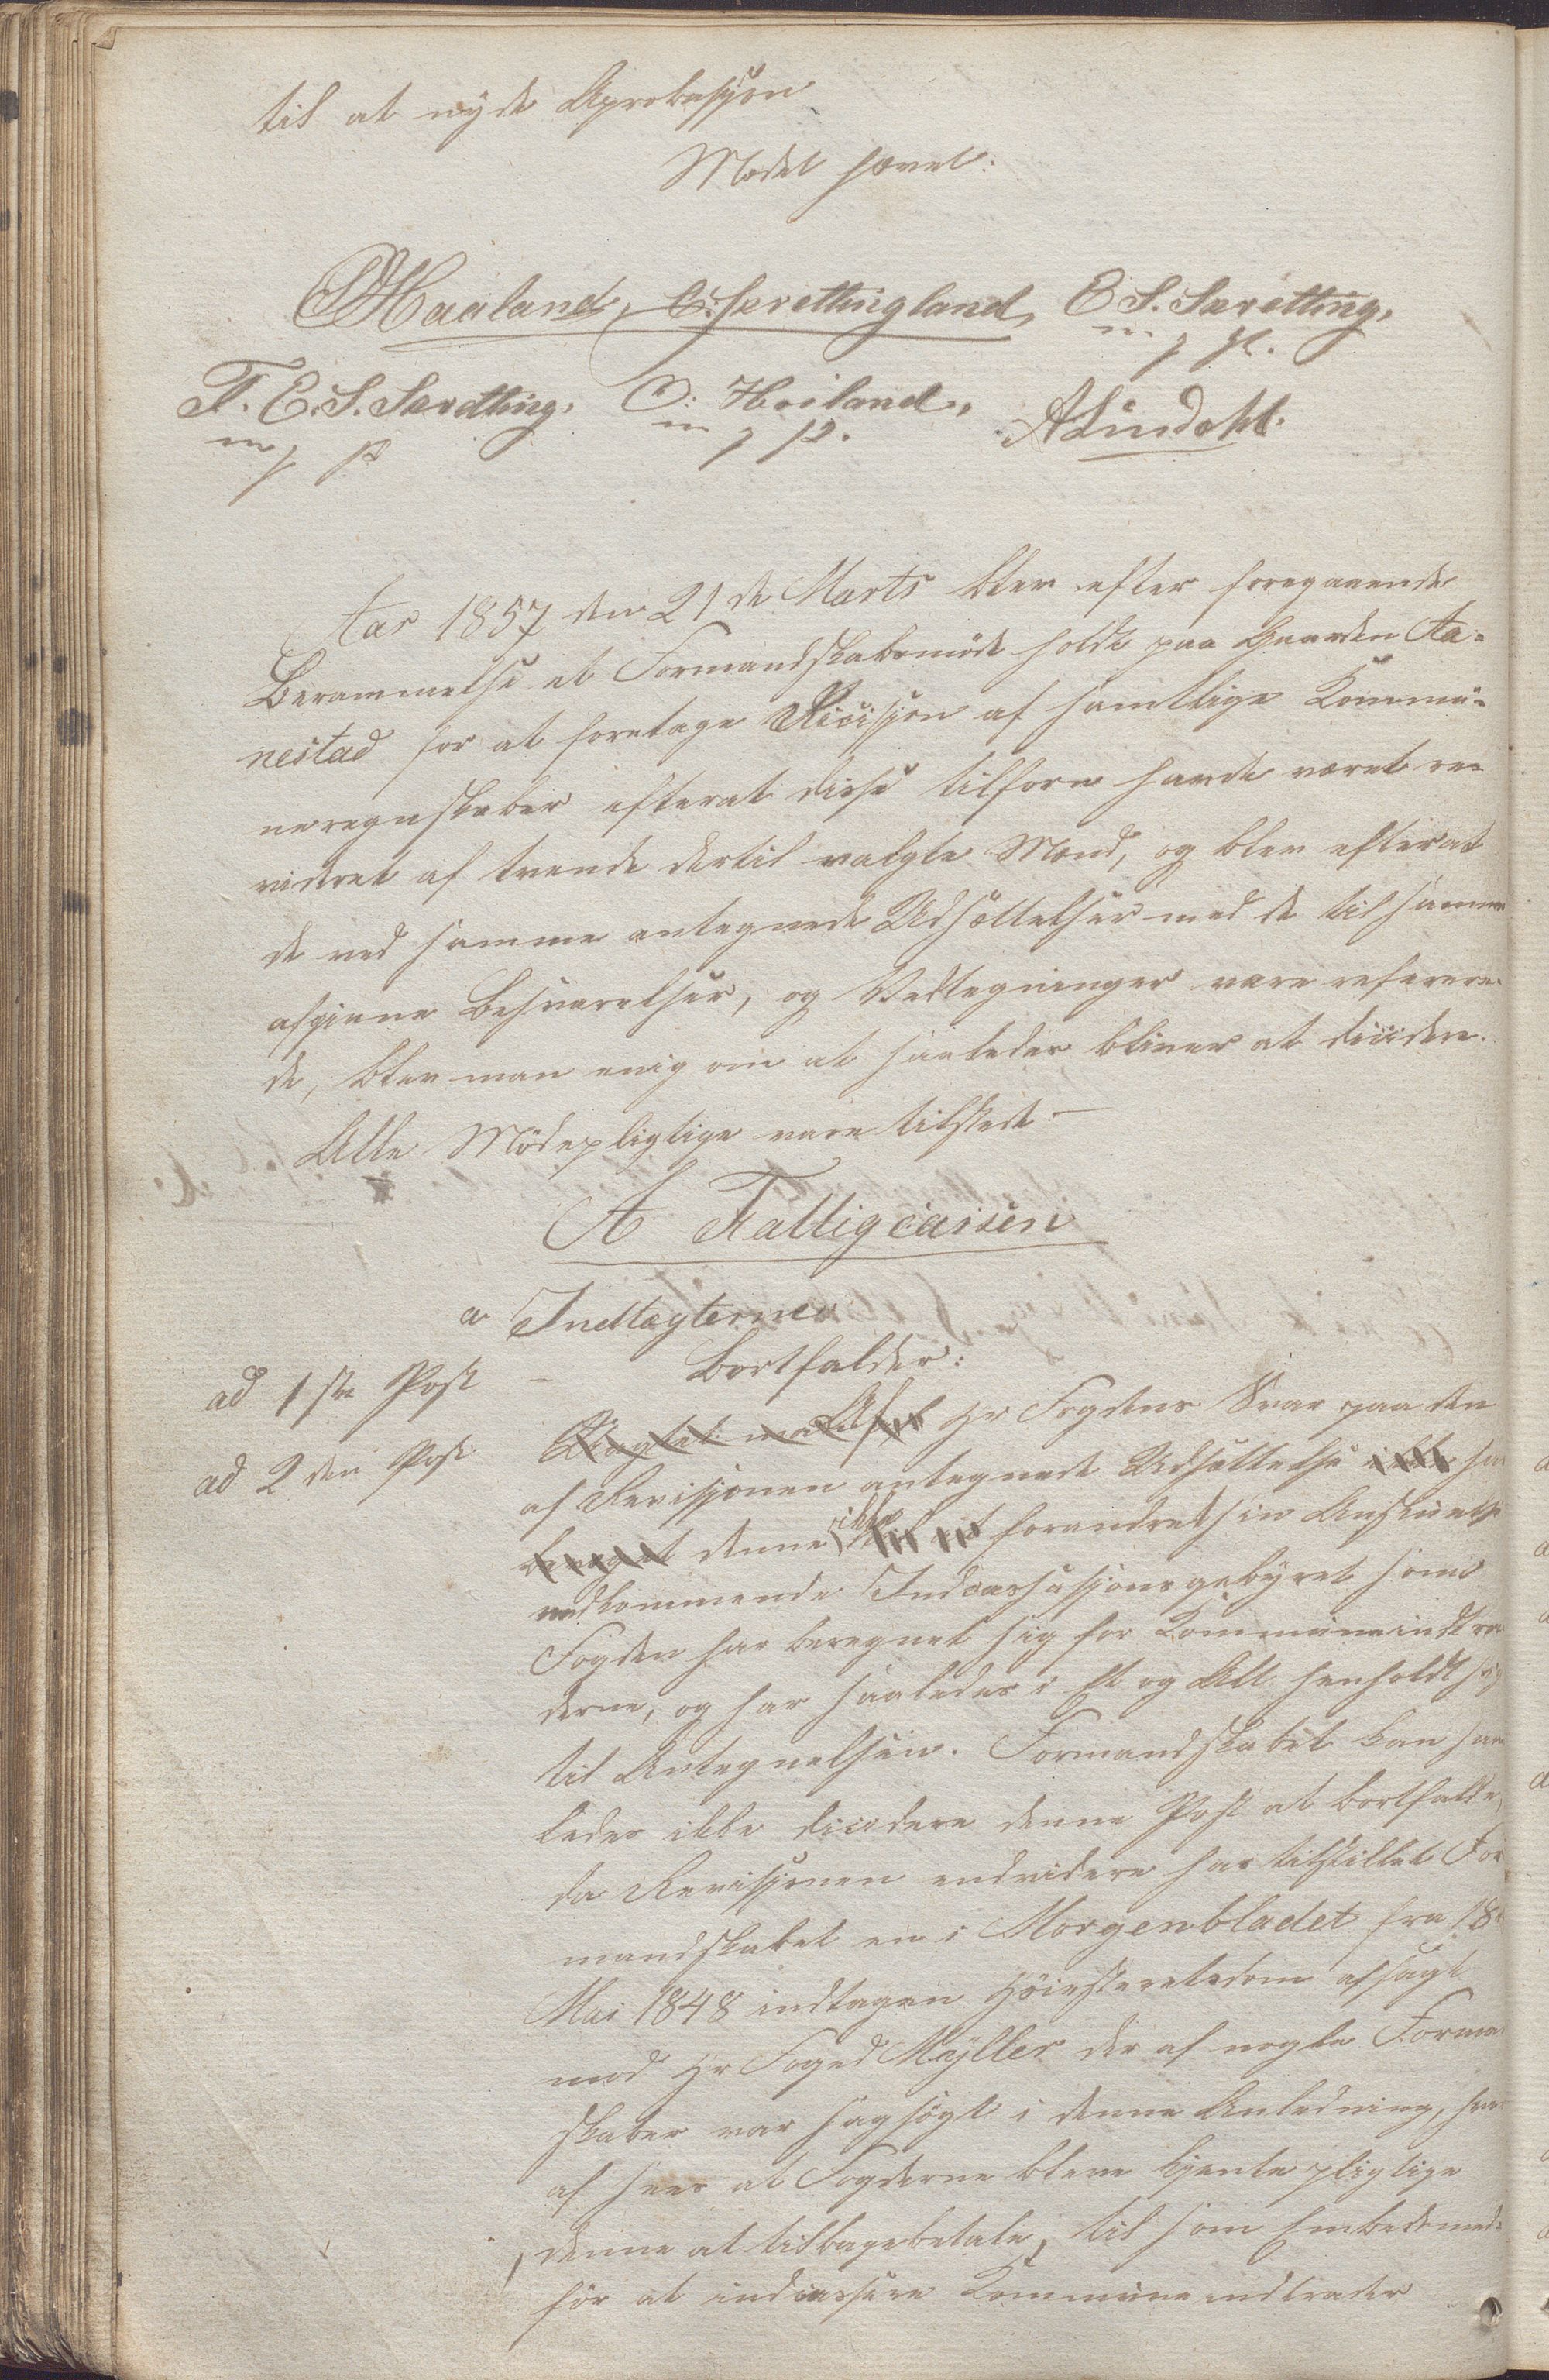 til at nyde Aprobasjon
Mødet hævet:
OHaaland, C. Svettingland, E S. Særetting,
m p p.
T. E. S. Sævdting, O: Hoiland,
m p p m p p. ALindahl.
Aar 1857 den 21de Marts blev efter foregaaende
Berammelse et Formandskabsmöde holdt paa Gaarden Aa-
nestad for at foretage Dicisjon af samtlige Kommu-
neregnskaber efterat disse tilforn havde været re-
videret af trende dertil valgte Mænd, og blev efterat
de ved samme antegnede Udsættelser med de til samme
afgivne Besvarelser, og Vedtegninger vare referere-
de, blev man enig om at saaledes bliver at dicidere.
Alle Mödepligtige vare tilstede —
A Fattigcassen
a Indtægterne
ad 1ste Post – Bortfalder:
ad 2den Post Af Hr Fogdens Svar paa den
af Revisjonen antegnede Udsættelse har
denne ikke forandret sin Anskuelse
vedkommende Indcassasjonsgebyret som
Fogden har beregnet sig for Kommuneindtra
derne, og har saaledes i Et og Alt henholdt sig
til Antegnelsen. Formandskabet kan saa
ledes ikke dicidere denne Post at bortfalde,
da Revisjonen endvidere har tilstillet For
mandskabet en i Morgenbladet fra 18
Mai 1848 indtagen Höiesteretsdom afsagt
mod Hr Foged Mÿller der af nogle Forman
skaber var sagsögt i denne Anledning, hvor
af sees at Fogderne bleve kjente pligtige
denne at tilbagebetale, til som Embedsmed-
för at indcassere Kommuneindtrader